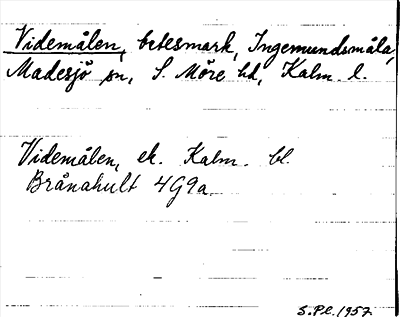 Videmålen, betesmark, Ingemundsmåla,
Madesjö sn, S. Möre hd, Kalm. l.
Videmålen, ek. Kalm. bl.
Brånahult 4G9a.
S.P.C. 1957